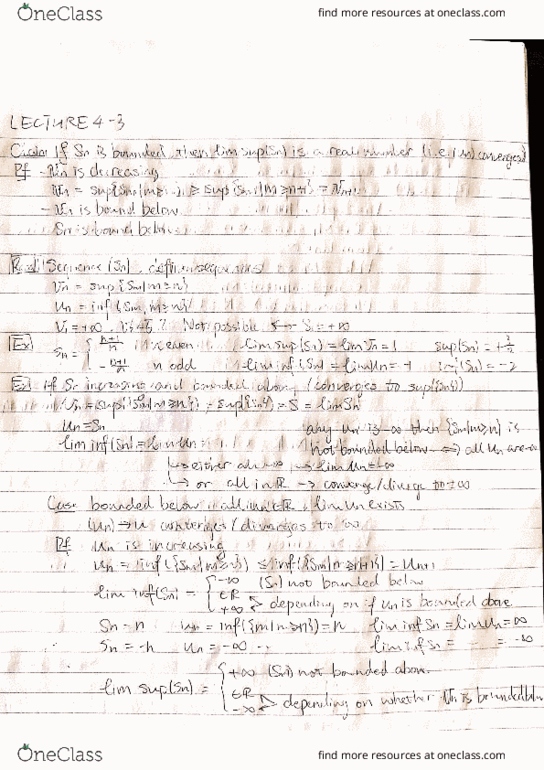 OneClass
find more resources at oneclass.com
LECTURE 4-3
Claim If Sn is bounded, then lim sup(Sn) is a real number (i.e. converges)
Pf - Vn is decreasing
Vn = sup{Sm|m≥n} ≥ sup{Sm|m≥n+1} = Vn+1
- Vn is bound below
Sn is bound below
Sequence (Sn), define sequences
Vn = sup{Sm|m≥n}
Un = inf{Sm, m≥n}
Vn=+∞, V5 Not possible S=+∞
Ex Sn = { n+1/n n even lim sup(Sn) = lim Vn = 1 sup(Sn) = +3/2
- n+1/n n odd lim inf(Sn) = lim Un = -1 inf(Sn) = -2
Ex If Sn increasing and bounded above (converges to sup(Sn))
Vn = sup{Sm|m≥n} = sup{Sn} = S = lim Sn
Un = Sn any Un is -∞ then {Sm|m≥n} is
lim inf(Sn) = lim Un not bounded below all Un are -∞
either all -∞ → lim Un = -∞
or all in R → converge/diverge to +∞
Case bounded below all Un ∈ R, lim Un exists
(Un) → u converges/diverges to ∞
Pf Un is increasing
Un = inf({Sm|m≥n}) ≤ inf({Sm|m≥n+1}) = Un+1
lim inf(Sn) = { -∞ (Sn) not bounded below
∈R
+∞ depending on if Un is bounded above
Sn = n Un = inf({m|m≥n}) = n lim inf Sn = lim Un = ∞
Sn = -n Un = -∞ lim inf Sn = = -∞
lim sup(Sn) = { +∞ (Sn) not bounded above
∈R
-∞ depending on whether Vn is bounded
OneClass
find more resources at oneclass.com